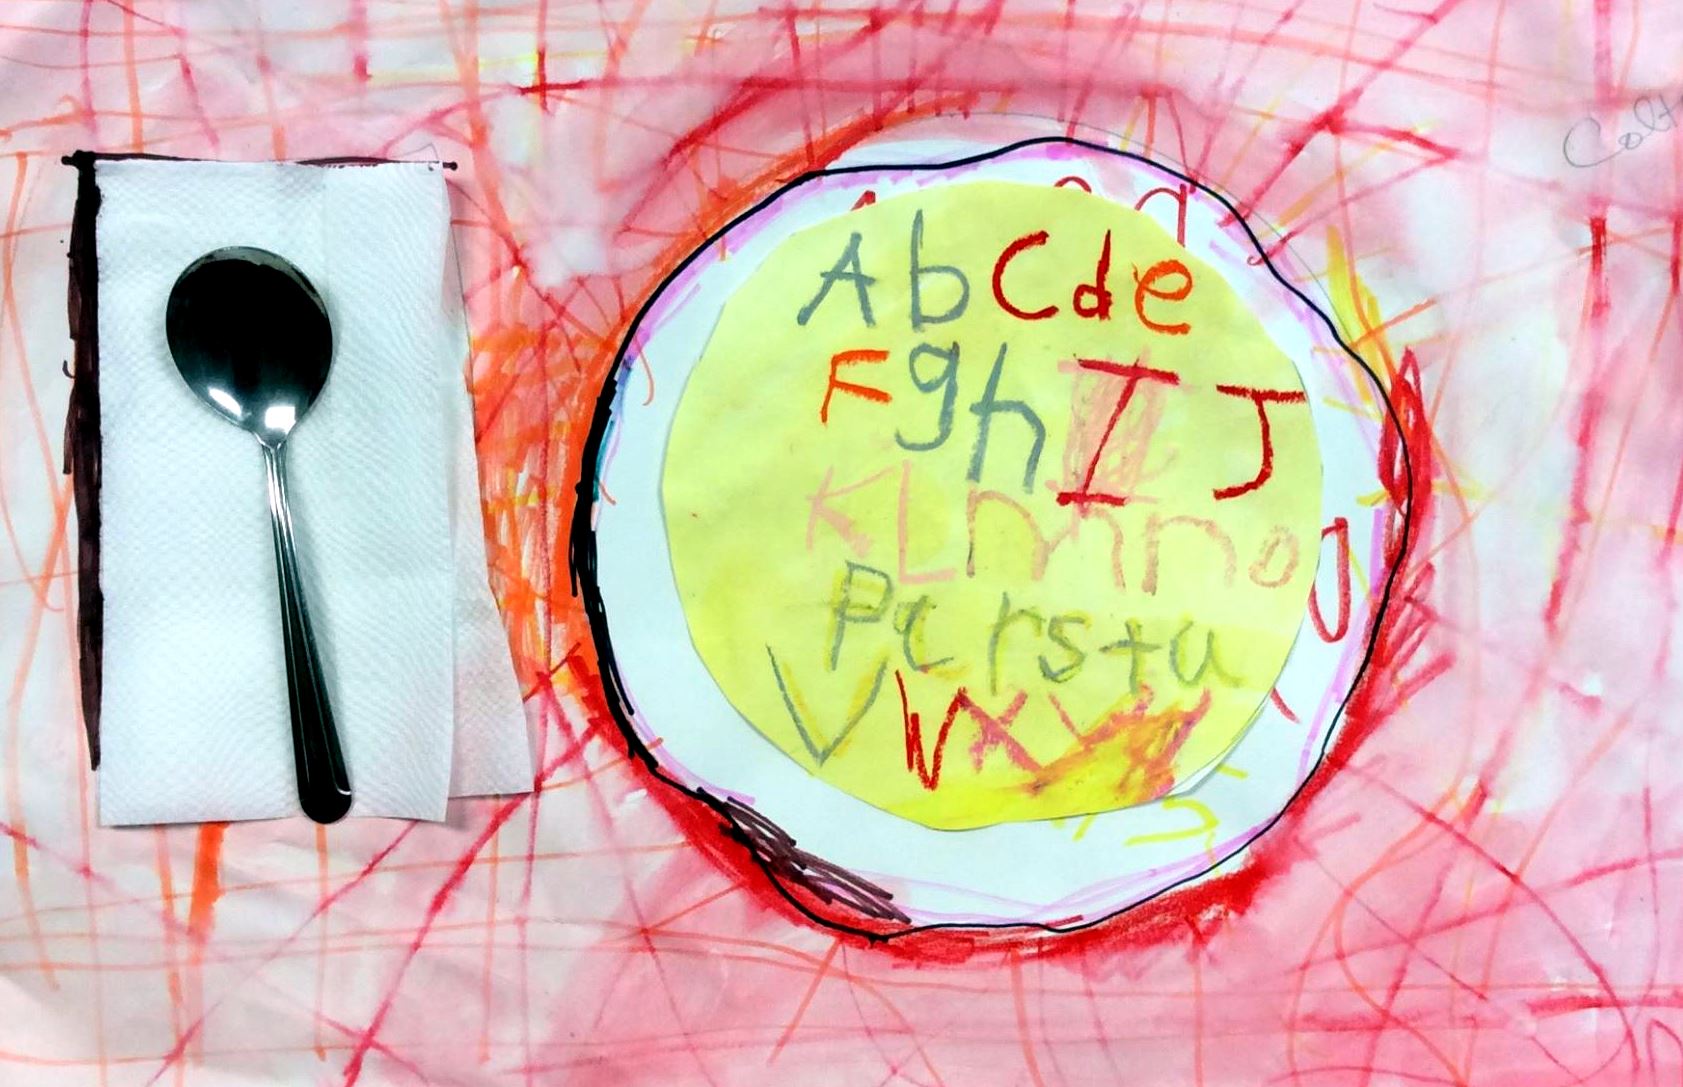 Colt
A b C d e
F g h I J
K L m n o
P q r s t u
V W X Y